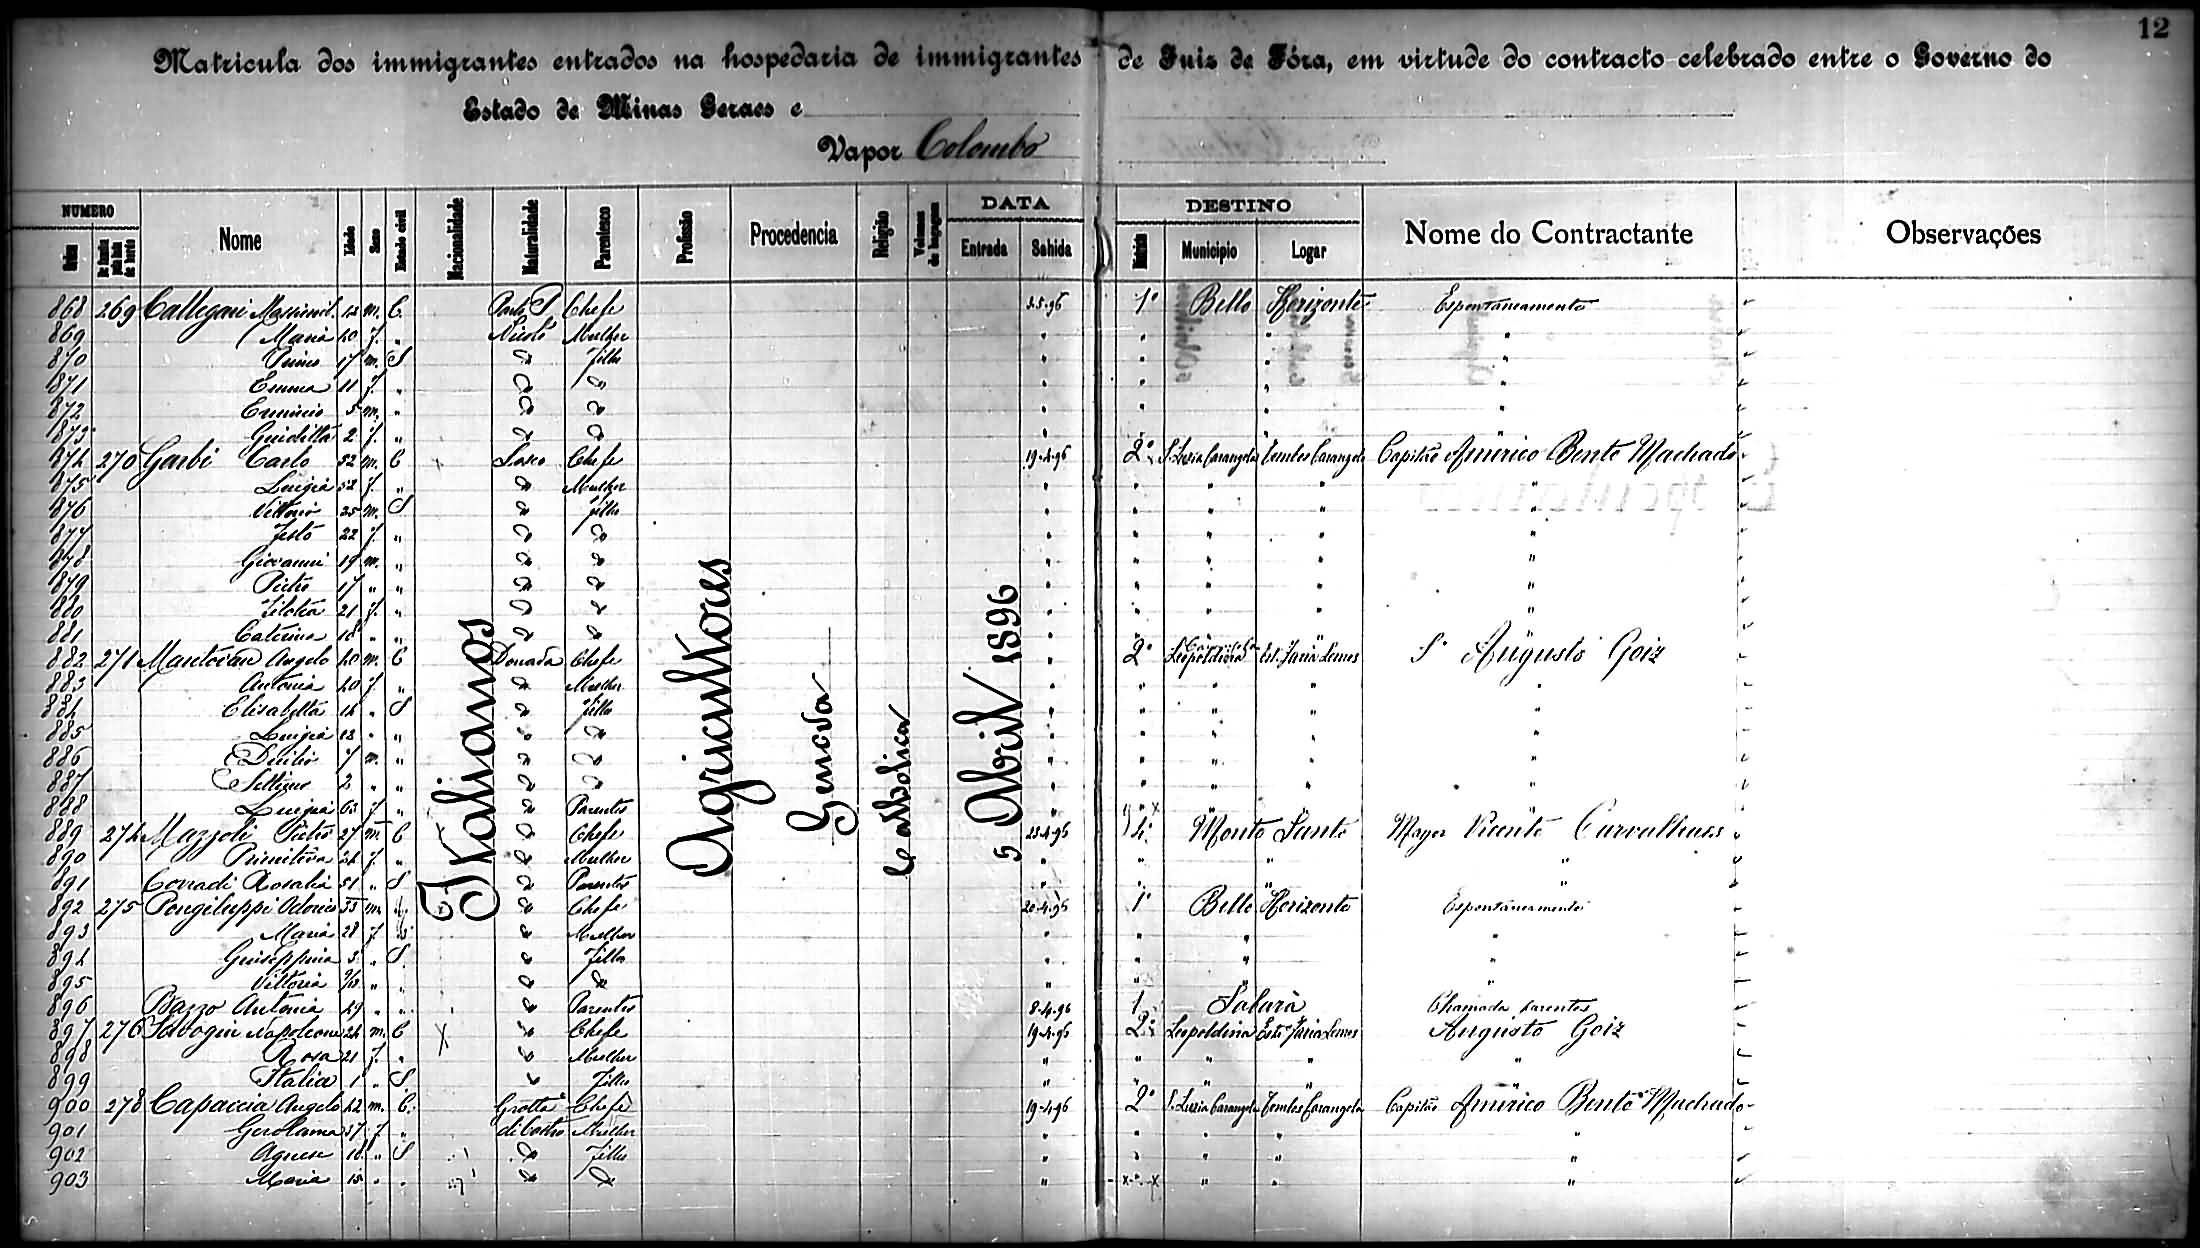 12
Matricula dos immigrantes entrados na hospedaria de immigrantes de Juiz de Fóra, em virtude do contracto celebrado entre o Governo do
Estado de Minas Geraes e
Vapor Colombo
NUMERO DATA DESTINO
Ordem Nome Idade Sexo Estado civil Nacionalidade Naturalidade Parentesco Profissão Procedencia Religião Volumes de bagagem Entrada Sahida Municipio Logar Nome do Contractante Observações
Italianos
Agricultores
Genova
Catholica
5 Abril 1896
868 269 Callegari m. C Chefe 1º Bello Horizonte Espontaneamente
869 Maria 40 f. " Mulher " " "
870 Primo 17 m. S " Filho " " "
871 Emma 11 f. " " " " " "
872 5 m. " " " " " "
873 Giuditta 2 f. " " " " " "
874 270 Garbi Carlo 52 m. C Chefe 19-4-96 2º S. Luzia Carangola Tombos Carangola Capitão Américo Bento Machado
875 Luigia 52 f. " " Mulher " " " " "
876 Vittorio 25 m. S " Filho " " " " "
877 22 f. " " " " " " " "
878 Giovanni 19 m. " " " " " " " "
879 Pietro 17 " " " " " " " " "
880 21 f. " " " " " " " "
881 Caterina 18 " " " " " " " " "
882 271 Mantovan Angelo 40 m. C Donada Chefe 2º Leopoldina Est. Faria Lemos Sr Augusto Goiz
883 Antonia 40 f. " " Mulher " " " " "
884 Elisabetta 14 " S " Filha " " " " "
885 Luigia 13 " " " " " " " " "
886 Duilio 7 m. " " " " " " " "
887 Settimo 2 " " " " " " " " "
888 Luigia 63 f. " " Parente " " "
889 274 Mazzoli Pietro 27 m C " Chefe 23-4-96 4º Monte Santo Major Vicente Carvalhaes
890 Primitiva 24 f. " " Mulher " " " "
891 Corradi Rosalia 51 " S " Parente " " "
892 275 Pongiluppi 33 m. " Chefe 20-4-96 1º Bello Horizonte Espontaneamente
893 Maria 28 f C " Mulher " " " "
894 Giuseppina 3 " S " Filha " " " "
895 Vittoria " " " " " " " "
896 Bazzo Antonia 29 " " " Parente 8-4-96 1º Sabará Chamada parentes
897 276 Napoleone 24 m. C " Chefe 19-4-96 2º Leopoldina Est. Faria Lemos Augusto Goiz
898 Rosa 21 f. " " Mulher " " " " "
899 Italia 1 " S " Filha " " " " "
900 278 Capaccia Angelo 42 m. C. Grotte Chefe 19-4-96 2º S. Luzia Carangola Tombos Carangola Capitão Américo Bento Machado
901 Gerolama 37 f. " di Castro Mulher " " " " "
902 Agnese 18 " S " Filha " " " " "
903 Maria 15 " " " " " " " "